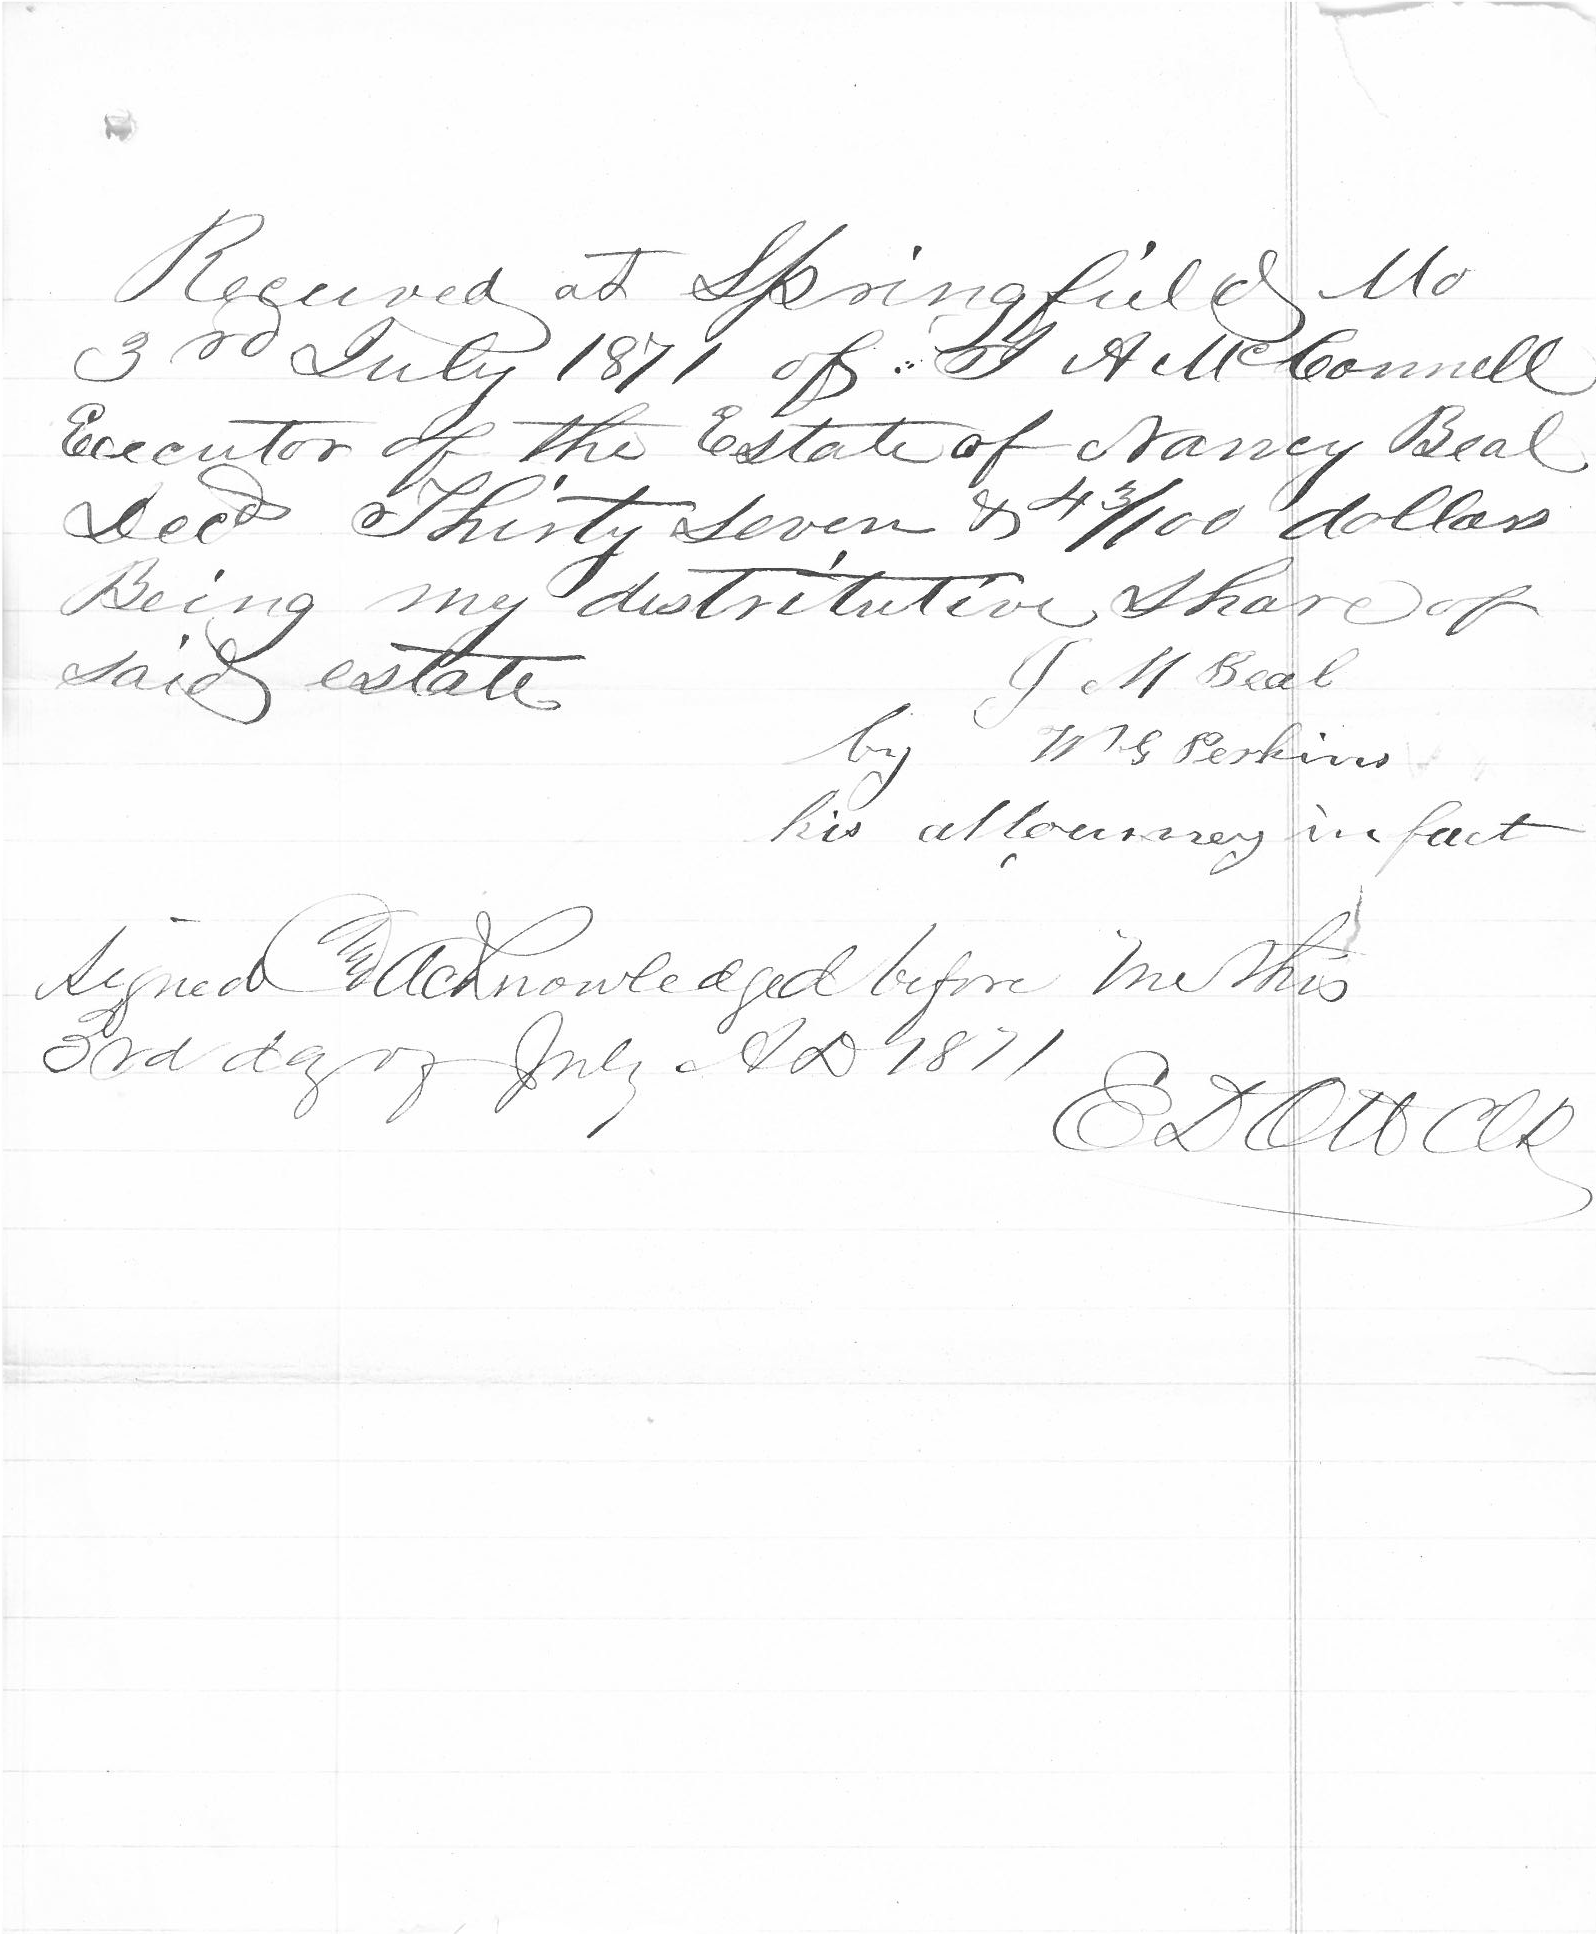 Received at Springfield Mo
3rd July 1871 of T A McConnell
Executor of the Estate of Nancy Beal
Decd Thirty Seven & 43/100 dollars
Being my distributive share of
said estate
J M Beal
by W G Perkins
his attourney in fact
Signed Acknowledged before me this
3rd day of July AD 1871
E D Ott Clk